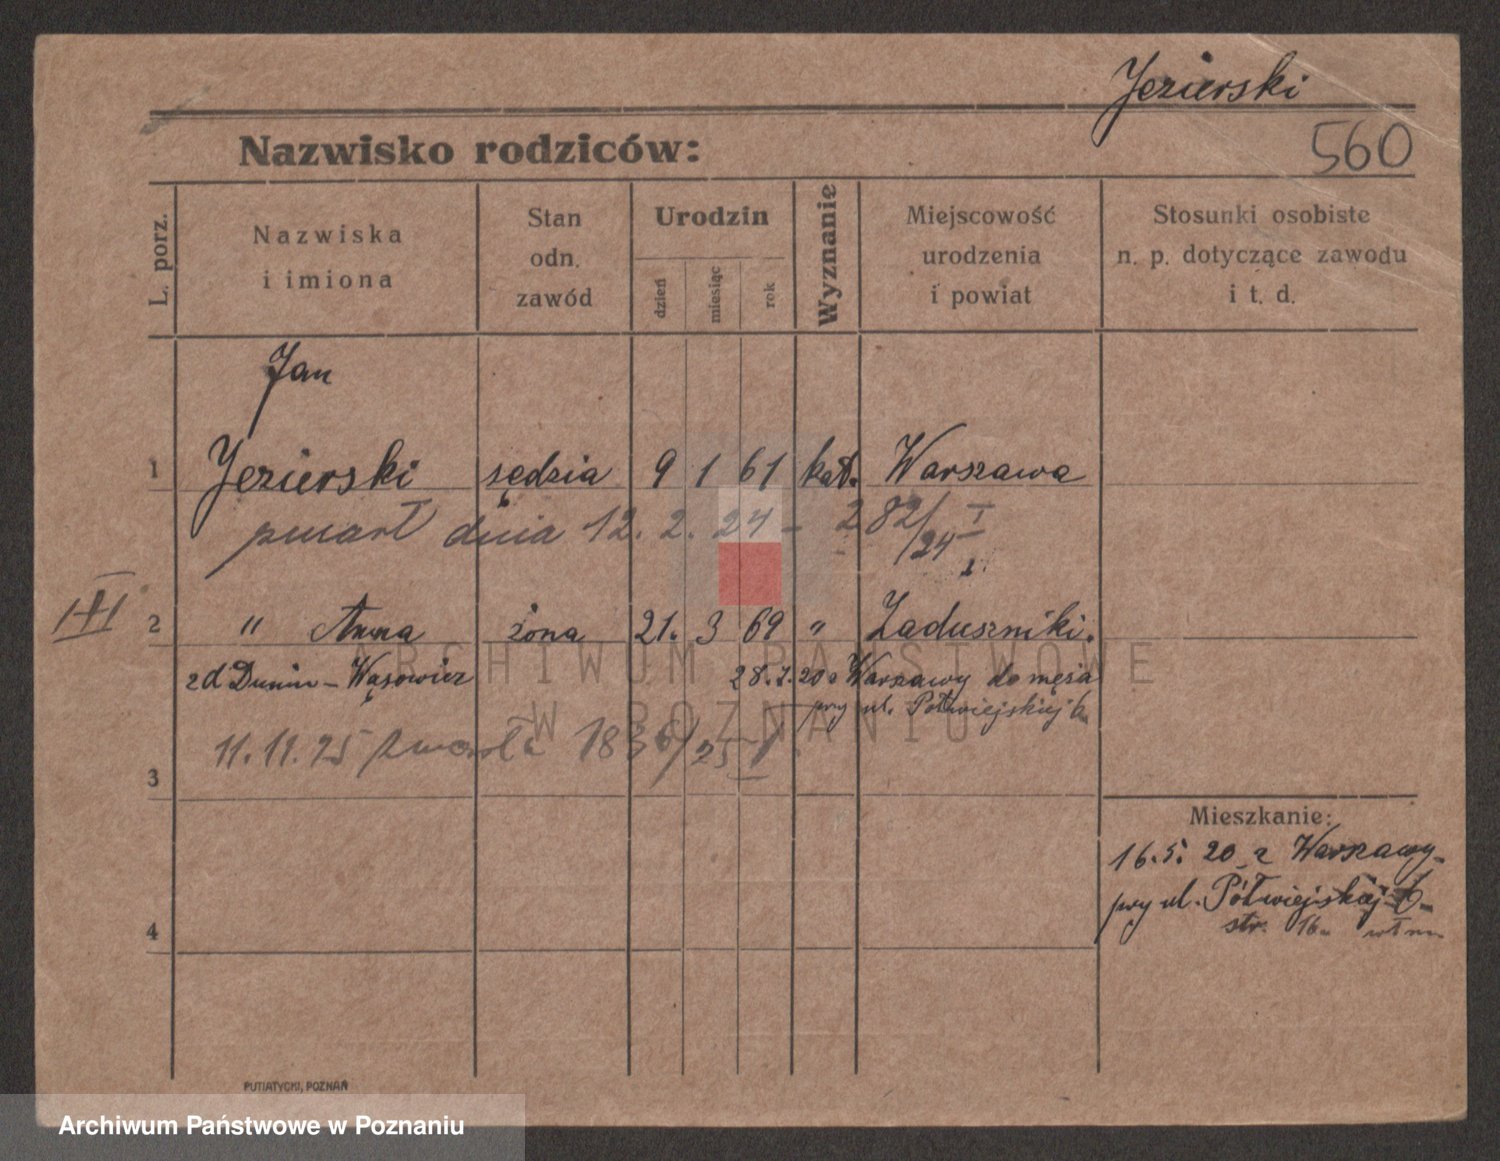 Jezierski
Nazwisko rodziców: 560
L. porz.
Nazwiska
i imiona
Stan
odn.
zawód
Urodzin
dzień
miesiąc
rok
Wyznanie
Miejscowość
urodzenia
i powiat
Stosunki osobiste
n. p. dotyczące zawodu
i t. d.
Jan
1 Jezierski sędzia 9 1 61 kat. Warszawa
zmarł dnia 12. 2. 24 - 282/24 I
2 " Anna żona 21. 3 69 " Zaduszniki.
zd Dunin-Wąsowicz 28.7.20 z Warszawy do męża
przy ul. Półwiejskiej
11.11.25 zmarła 1836/25 I
3
Mieszkanie:
16.5.20 z Warszawy
przy ul. Półwiejskiej
str. 16
4
PUTIATYCKI, POZNAŃ
ARCHIWUM PAŃSTWOWE
W POZNANIU
Archiwum Państwowe w Poznaniu